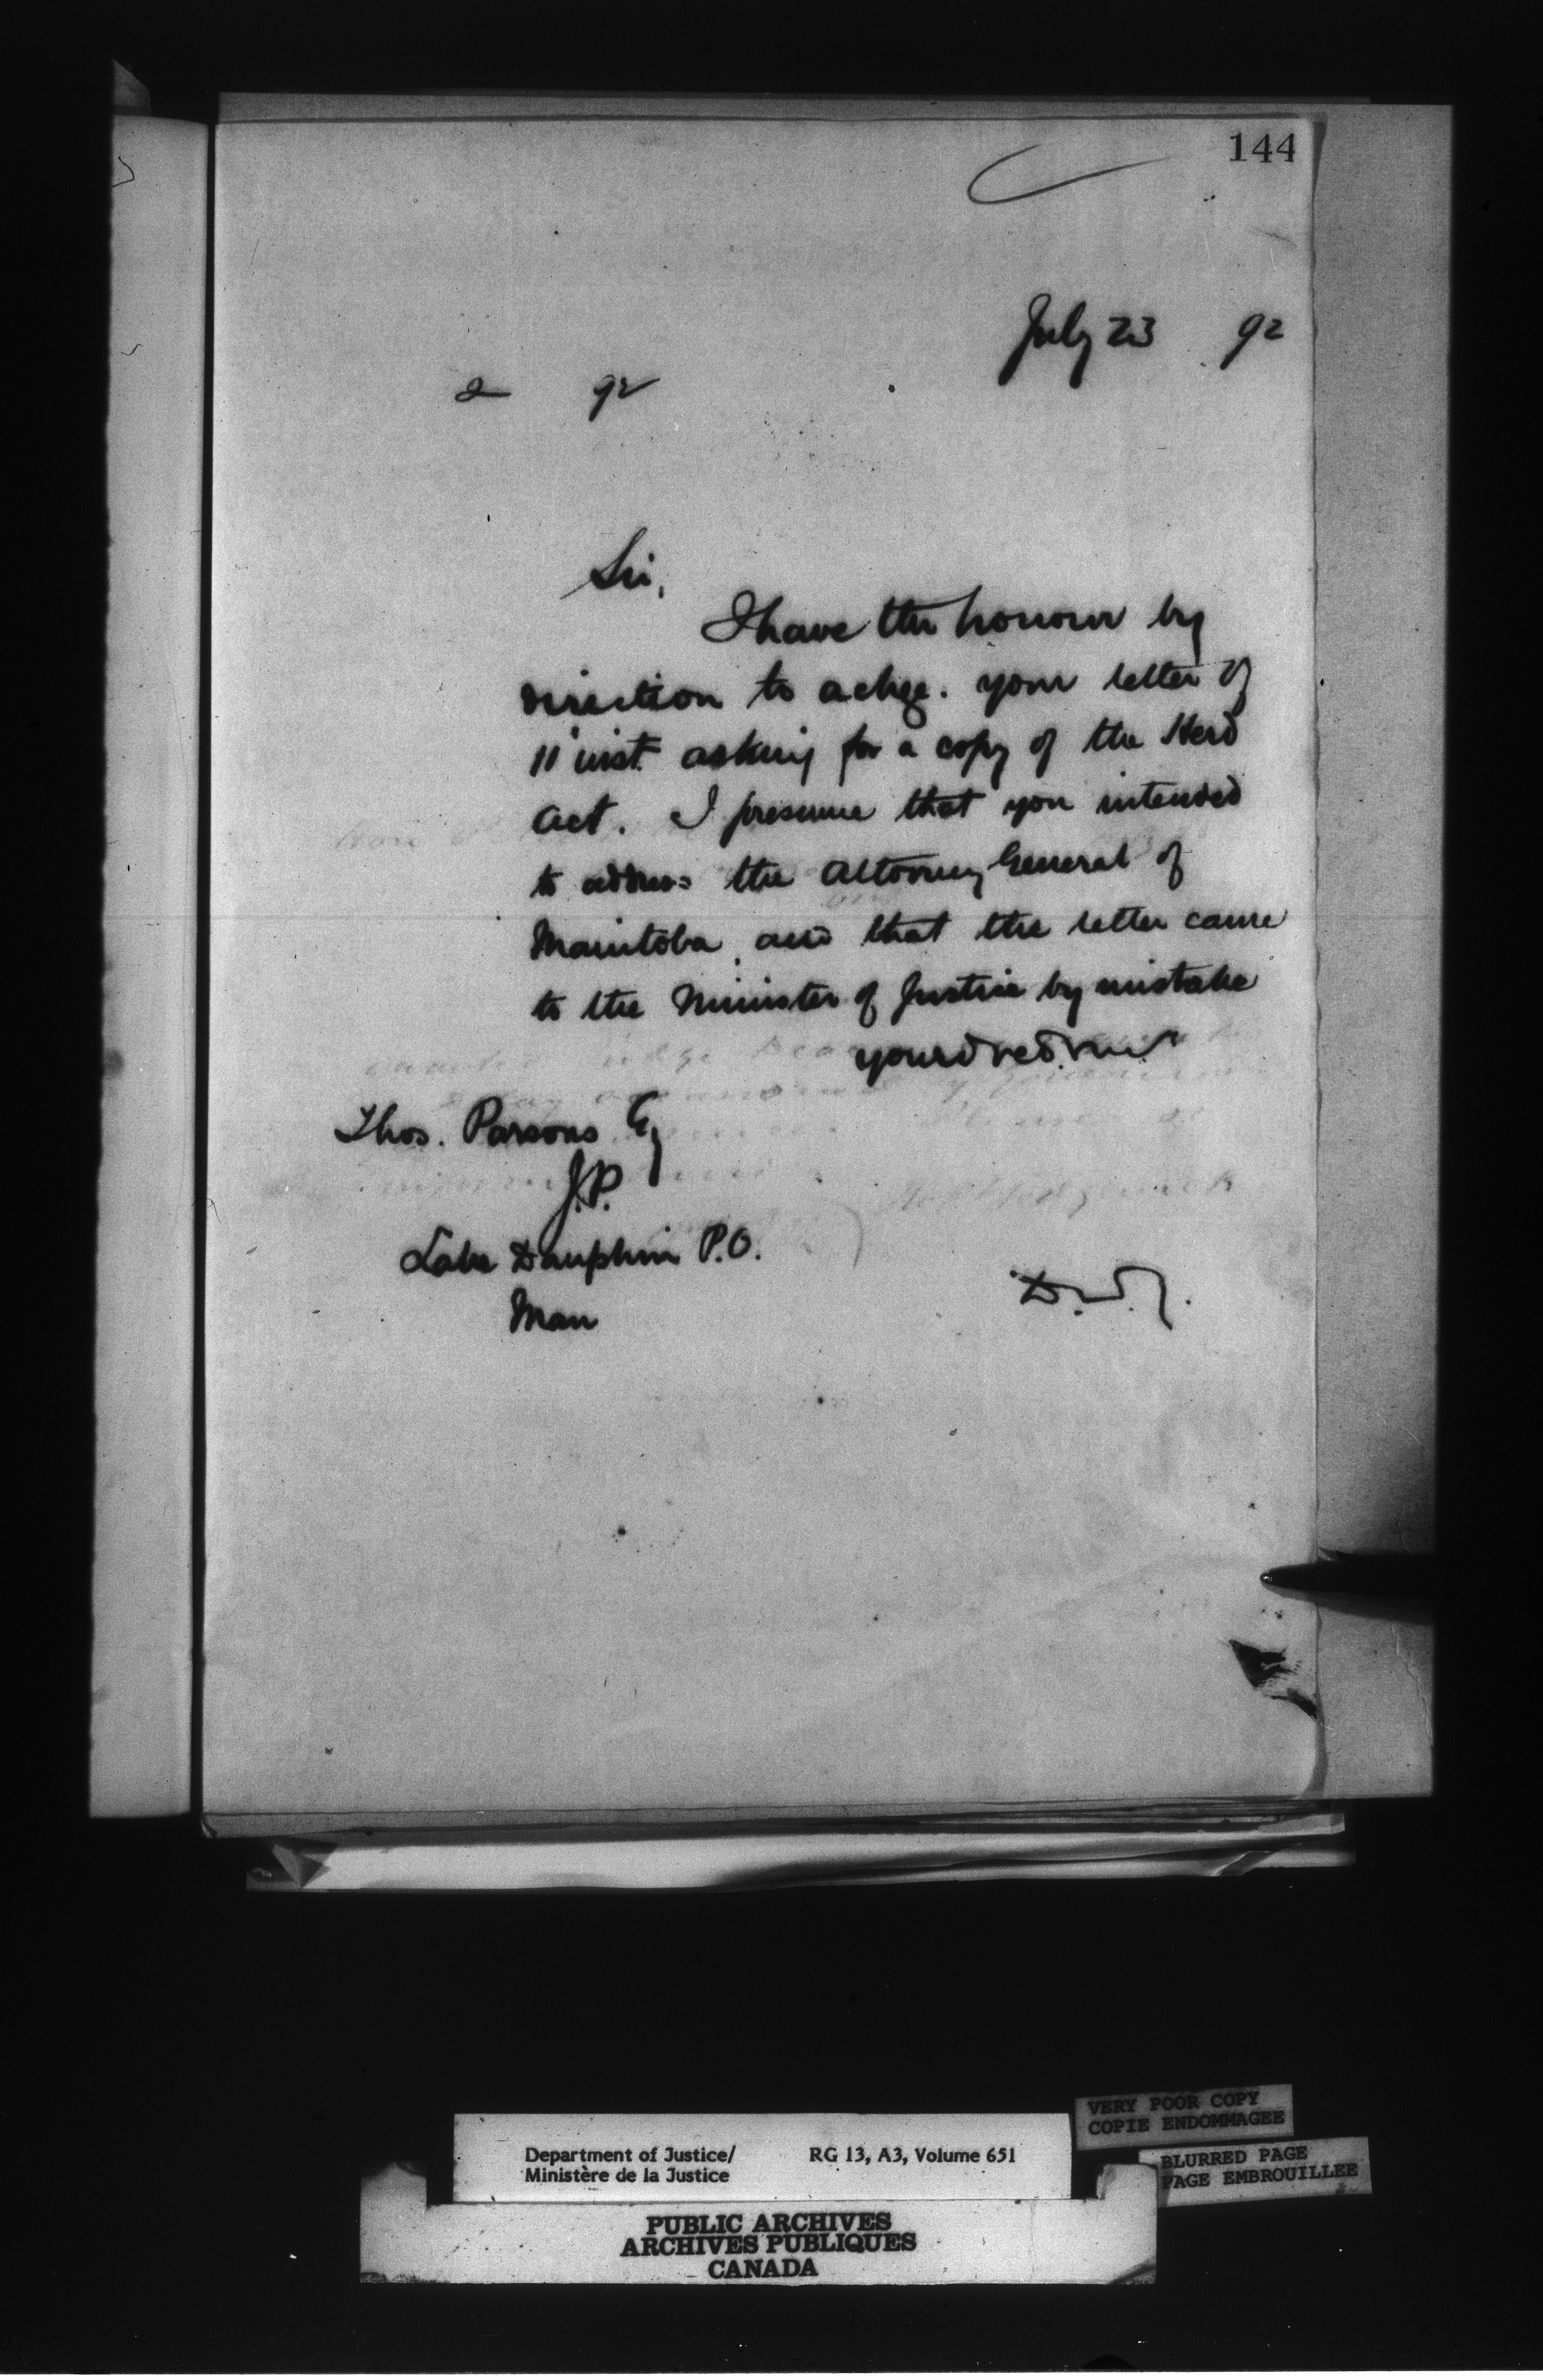 144
July 23 92
2 92
Sir,
I have the honour by
direction to ackge. your letter of
11" inst. asking for a copy of the Herd
Act. I presume that you intended
to address the Attorney General of
Manitoba, and that the letter came
to the Minister of Justice by mistake
Thos. Parsons Eq
J.P.
Lake Dauphin P.O.
Man
D.
VERY POOR COPY
COPIE ENDOMMAGEE
BLURRED PAGE
PAGE EMBROUILLEE
Department of Justice/ RG 13, A3, Volume 651
Ministère de la Justice
PUBLIC ARCHIVES
ARCHIVES PUBLIQUES
CANADA